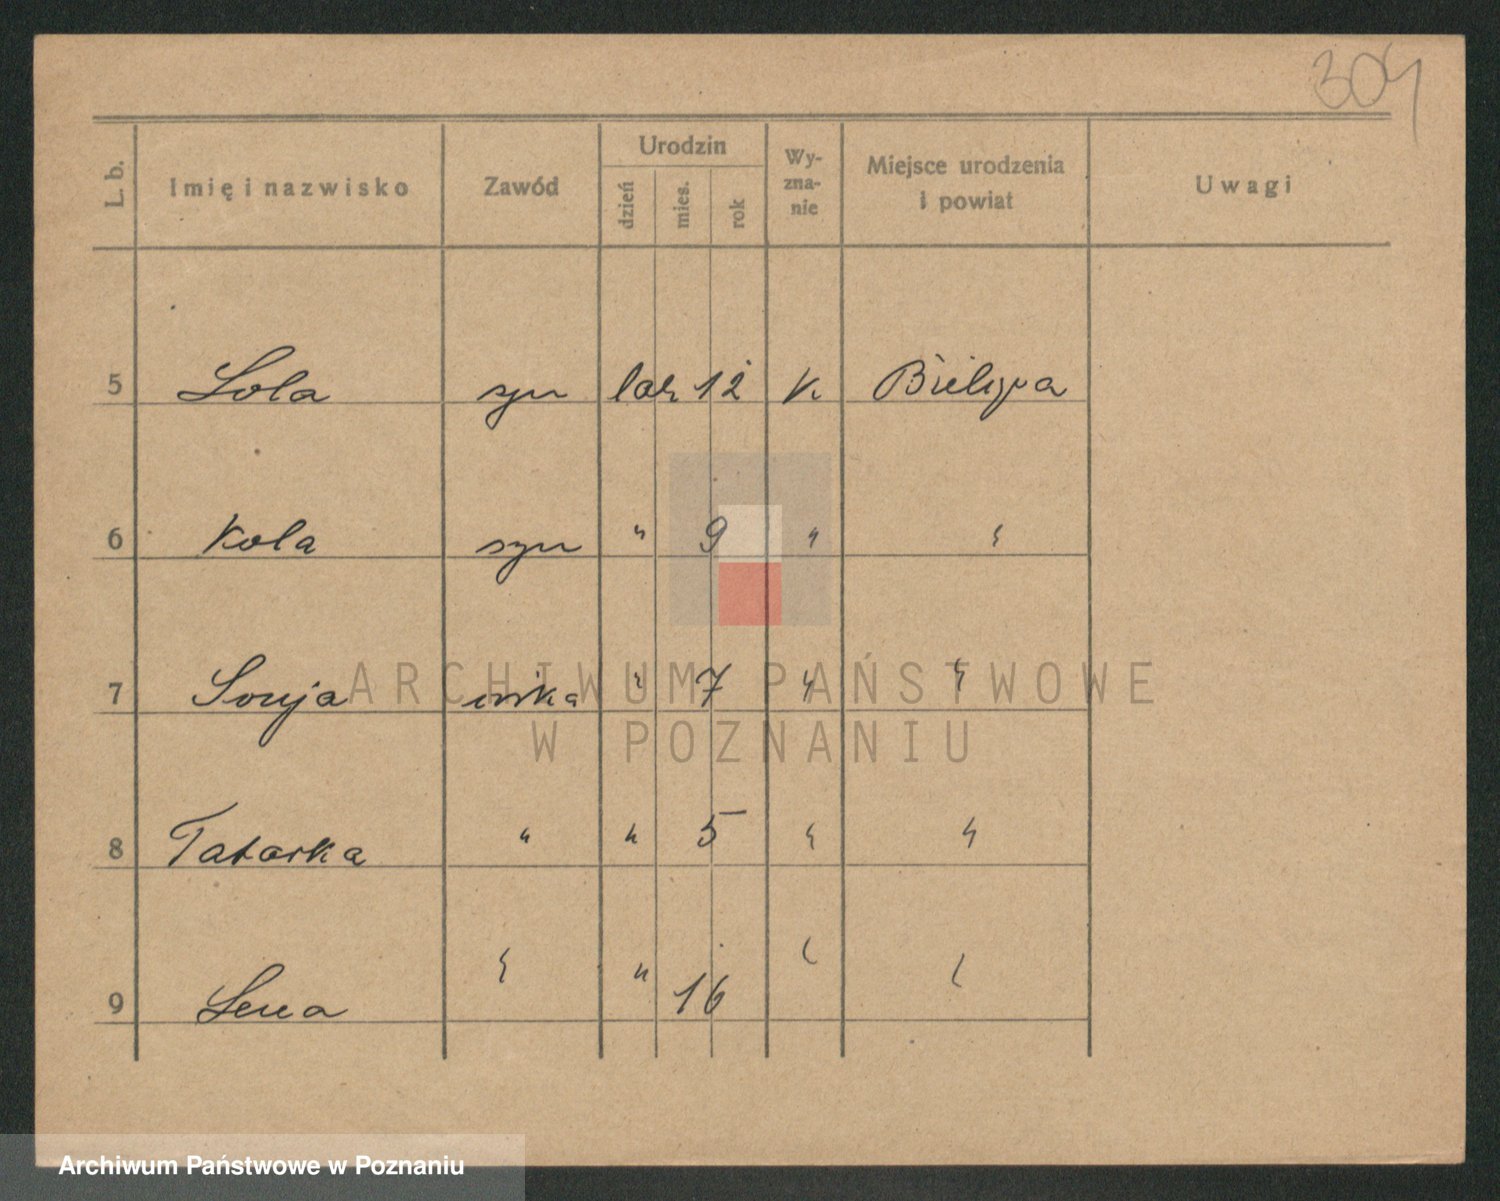 304
L. b. Imię i nazwisko Zawód Urodzin dzień mies. rok Wy-zna-nie Miejsce urodzenia i powiat Uwagi
5 Lola syn lat 12 K
6 Kola syn " 9 " "
7 Sonja córka " 7 " "
8 Tatarka " " 5 " "
9 Lena " " 16 " "
ARCHIWUM PAŃSTWOWE
W POZNANIU
Archiwum Państwowe w Poznaniu